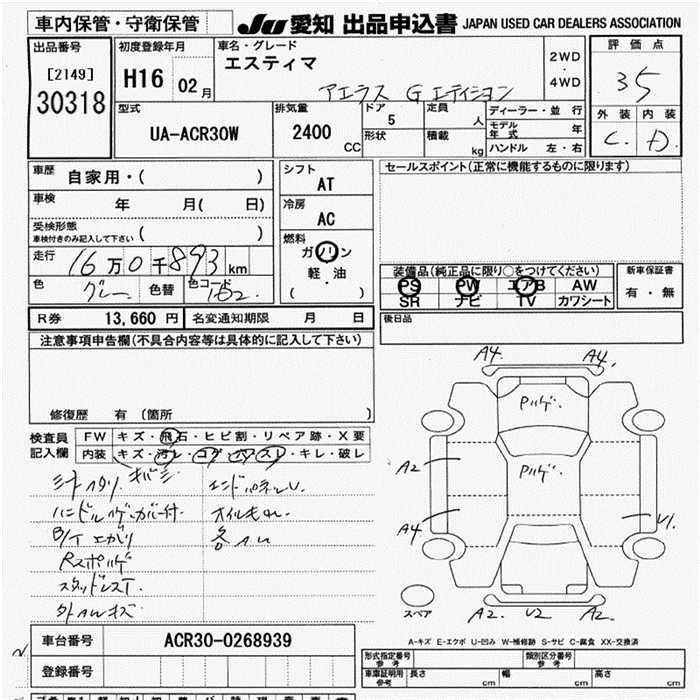 車内保管・守衛保管 JU 愛知 出品申込書 JAPAN USED CAR DEALERS ASSOCIATION
出品番号 初度登録年月 車名・グレード 評価点
[2149] H16 02月 エスティマ 2WD ・ 4WD
30318 アエラス G エディション 35
型式 排気量 ドア 5 定員 人 ディーラー・並行 外装 内装
UA-ACR30W 2400 CC 形状 積載 kg モデル年式 年 C D
ハンドル 左・右
車歴 自家用・( ) シフト セールスポイント(正常に機能するものに限ります)
AT
車検 年 月( 日) 冷房
受検形態 ( ) AC
車検付きのみ記入して下さい
燃料
走行 16万0千893km ガソリン 装備品(純正品に限り○をつけてください) 新車保証書
色 グレー 色替 色コード 1B2 軽・油 PS PW エアB AW 有・無
( ) SR ナビ TV カワシート
R券 13,660 円 名変通知期限 月 日 後日品
注意事項申告欄(不具合内容等は具体的に記入して下さい)
修復歴 有 (箇所 )
A4 A4
検査員 FW キズ・飛石・ヒビ割・リペア跡・X要
記入欄 内装 キズ・汚レ・コゲ・ハ・スレ・キレ・破レ
Pハゲ.
Pハゲ.
A2
A4 U1
ハンドルハゲ.カバー付
オイルモレ
スタッドレスT.
外AWキズ
スペア A2. U2 A2.
A-キズ E-エクボ U-凹み W-補修跡 S-サビ C-腐食 XX-交換済
車台番号 ACR30-0268939
登録番号
形式指定番号 参考 類別区分番号 参考
車庫証明用 参考 長さ cm 幅 cm 高さ cm